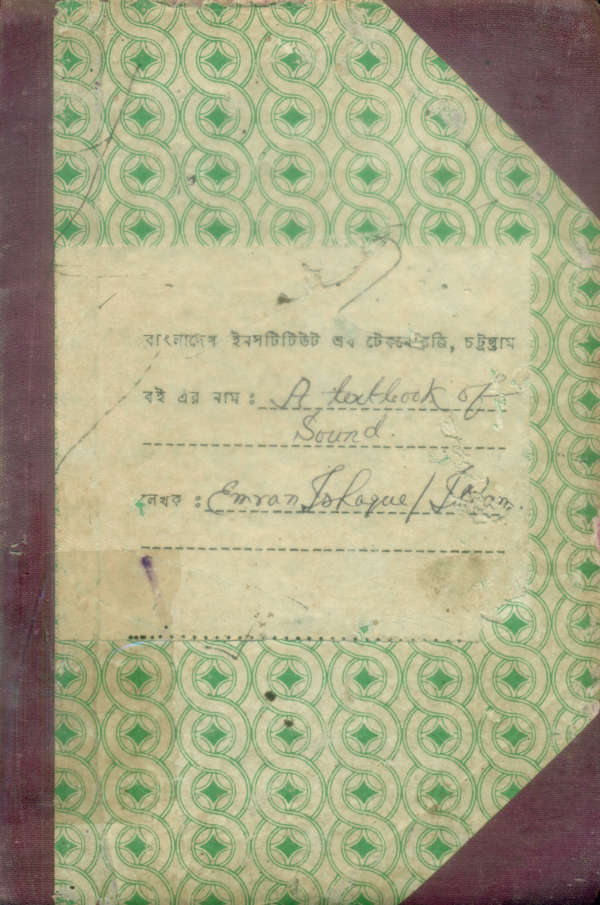 বাংলাদেশ ইনসটিটিউট অব টেকনোলজি, চট্টগ্রাম
বই এর নাম : A textbook of
Sound.
লেখক : Emran Ishaque /